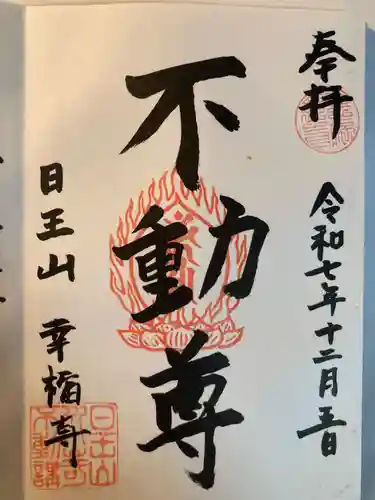 奉拝
令和七年十二月五日
不動尊
日王山 幸楯寺